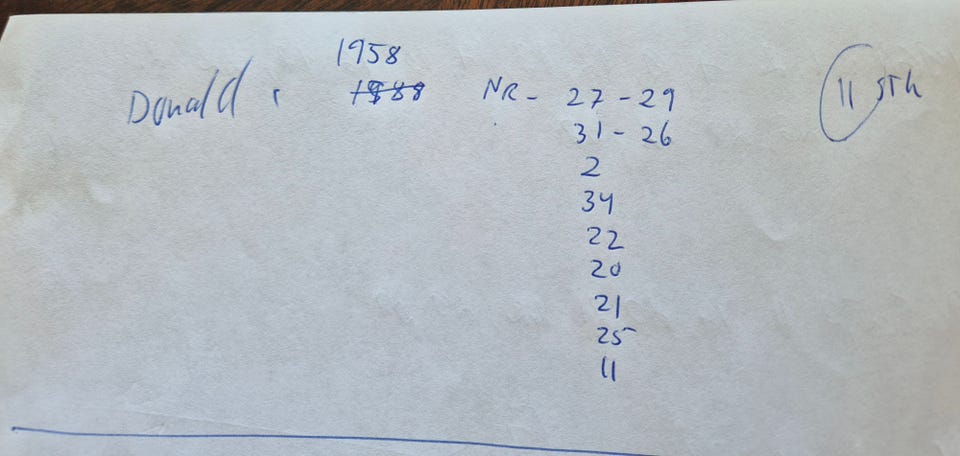 1958
Donald : 1988 NR - 27 - 29 11 STK
31 - 26
2
34
22
20
21
25
11